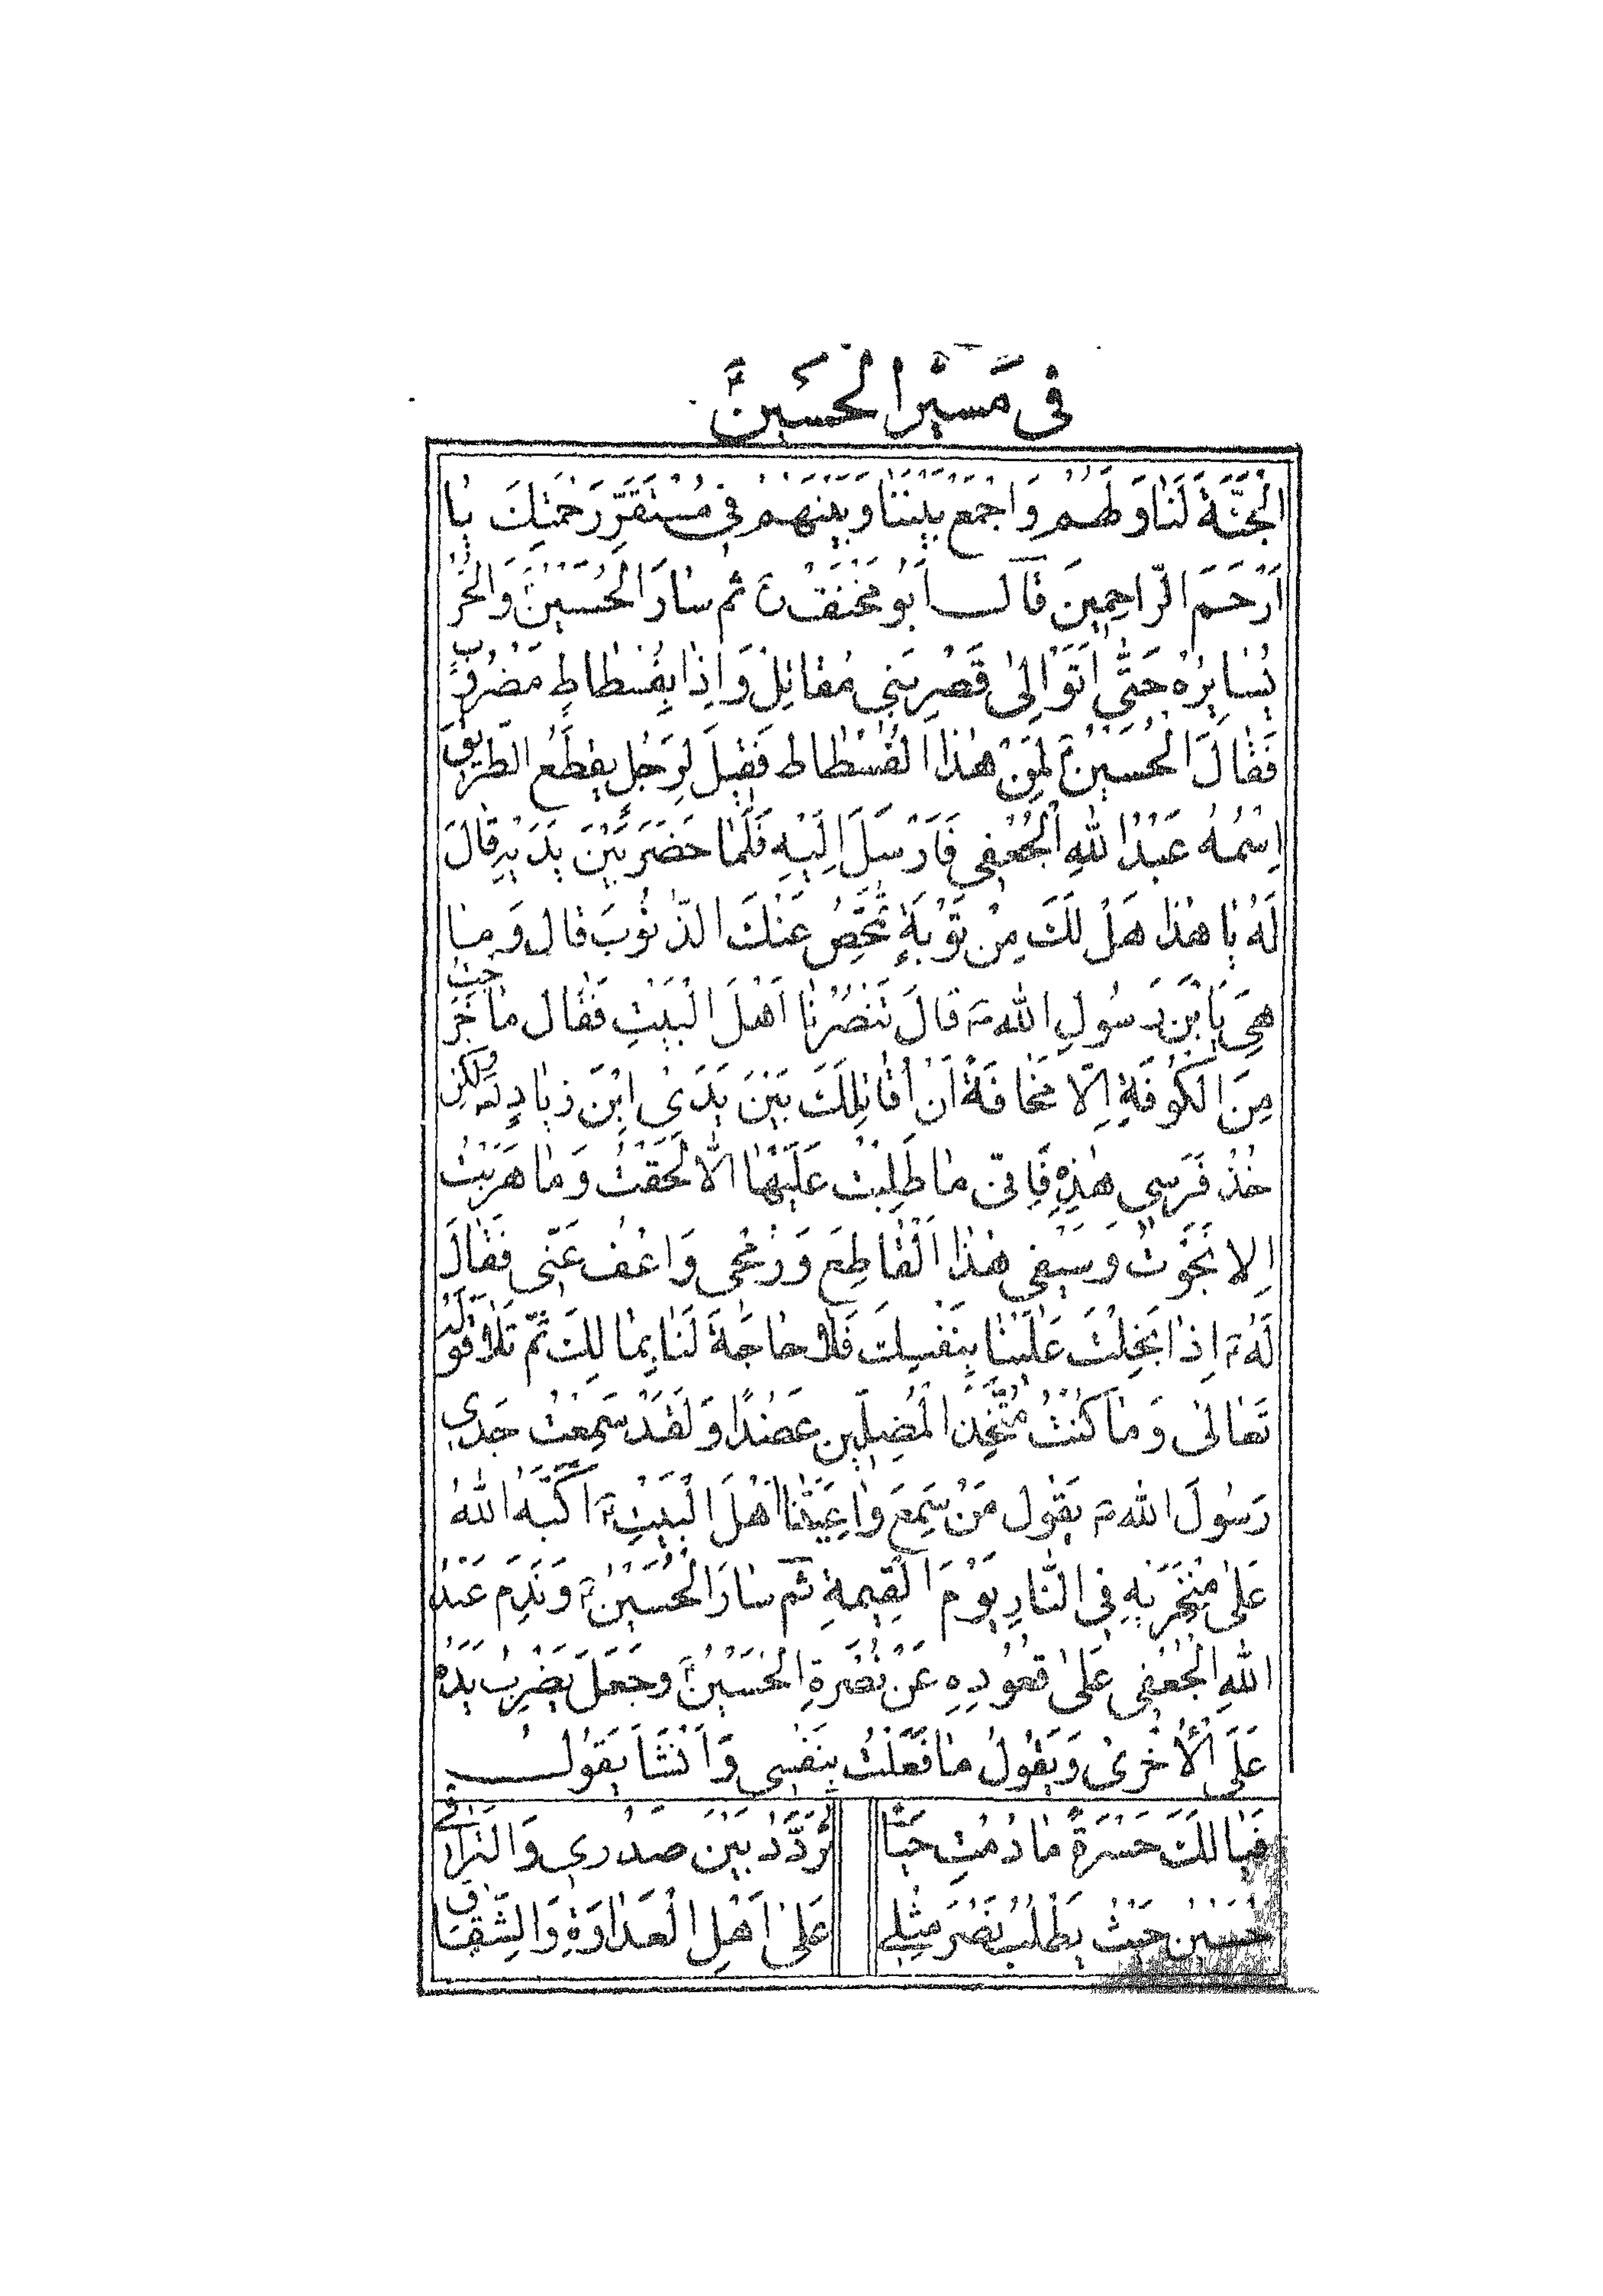 في مَسيْرِ الحُسَينؑ
الْجَنَّةَ لَنٰا وَلَهُم وَاجْمَعْ بَيْنَنٰا وَبَيْنَهُمْ في مُسْتَقَرِّ رَحْمَتِكَ يٰا
اَرْحَمَ الرّاحِمِينَ قٰالَ اَبُو مِخْنَفْ ثم سٰارَ الْحُسَيْنُؑ وَالْحُرُّ
يُسٰايِرُهُ حَتّٰى اَتَوْا اِلىٰ قَصْرِ بَني مُقٰاتِلْ وَاِذٰا بِفُسْطٰاطٍ مَضْرُوبٍ
فَقٰالَ الْحُسَيْنُؑ لِمَنْ هٰذَا الْفُسْطٰاط فَقيلَ لِرَجُلٍ يقْطَعُ الطَّريقَ
اِسْمُهُ عَبْدُ اللهِ الْجُعْفي فَاَرْسَلَ اِلَيْهِ فَلَمّٰا حَضَرَ بَيْنَ يَدَيْهِ قٰالَ
لَهُ يٰا هٰذٰا هَلْ لَكَ مِنْ تَوْبَةٍ تُمَحِّصُ عَنْكَ الذّنُوبَ قٰال وَمٰا
هِيَ يَا بْنَ رَسُولِ اللهِ ص قٰالَ تَنْصُرُنٰا اَهْلَ الْبَيْتِ فَقٰال مٰا خَرَجْتُ
مِنَ الْكُوفَةِ اِلّا مَخٰافَةً اَنْ اُقٰاتِلَكَ بَيْنَ يَدَىْ ابْنَ زِيٰادٍ وَلكِنْ
خُذْ فَرَسِي هٰذِهِ فَاِنّي مٰا طَلَبْتُ عَلَيْهٰا اِلّا لَحَقْتُ وَمٰا هَرَبْتُ
اِلا نَجَوْتُ وَسَيْفي هٰذَا الْقٰاطِعَ وَرُمْحي وَاعْفُ عَنّي فَقٰالَ
لَهُؑ اِذٰا بَخِلْتَ عَلَيْنٰا بِنَفْسِكَ فَلٰا حٰاجَةَ لَنٰا بِمٰا لَكَ ثمّ تَلٰا قَوْلَهُ
تَعٰالىٰ وَمٰا كُنْتُ مُتَّخِذَ الْمُضِلّينَ عَضُدًا وَلَقَدْ سَمِعْتُ جَدي
رَسُولَ اللهِ ص يَقُول مَنْ سَمِعَ وٰاعِيَتَنٰا اَهْلَ الْبَيْتِؑ اَكَبَّه اللهُ
عَلىٰ مِنْخَرَيْهِ فِي النّٰارِ يَوْمَ الْقِيمةِ ثمّ سٰارَ الْحُسَيْنُؑ وَنَدِمَ عَبْدُ
اللهِ الْجُعْفي عَلىٰ قعُودِهِ عَنْ نُصْرَةِ الْحُسَيْنِؑ وجَعَلَ يَضْرِبُ يَدَهُ
عَلَى الْأُخْرىٰ وَيَقُولُ مٰا فَعَلْتُ بِنَفْسي وَاَنْشَاَ يَقُولُ
فَيٰا لَكَ حَسْرَةً مٰا دُمْتُ حَيّاً تُرَدَّدُ بَيْنَ صَدْري وَالتَّرٰاقي
حُسَيْن حَيْثُ يَطْلُبُ نَصْرَ مِثْلي عَلىٰ اَهْلِ الْعَدٰاوَةِ وَالشِّقٰاقِ